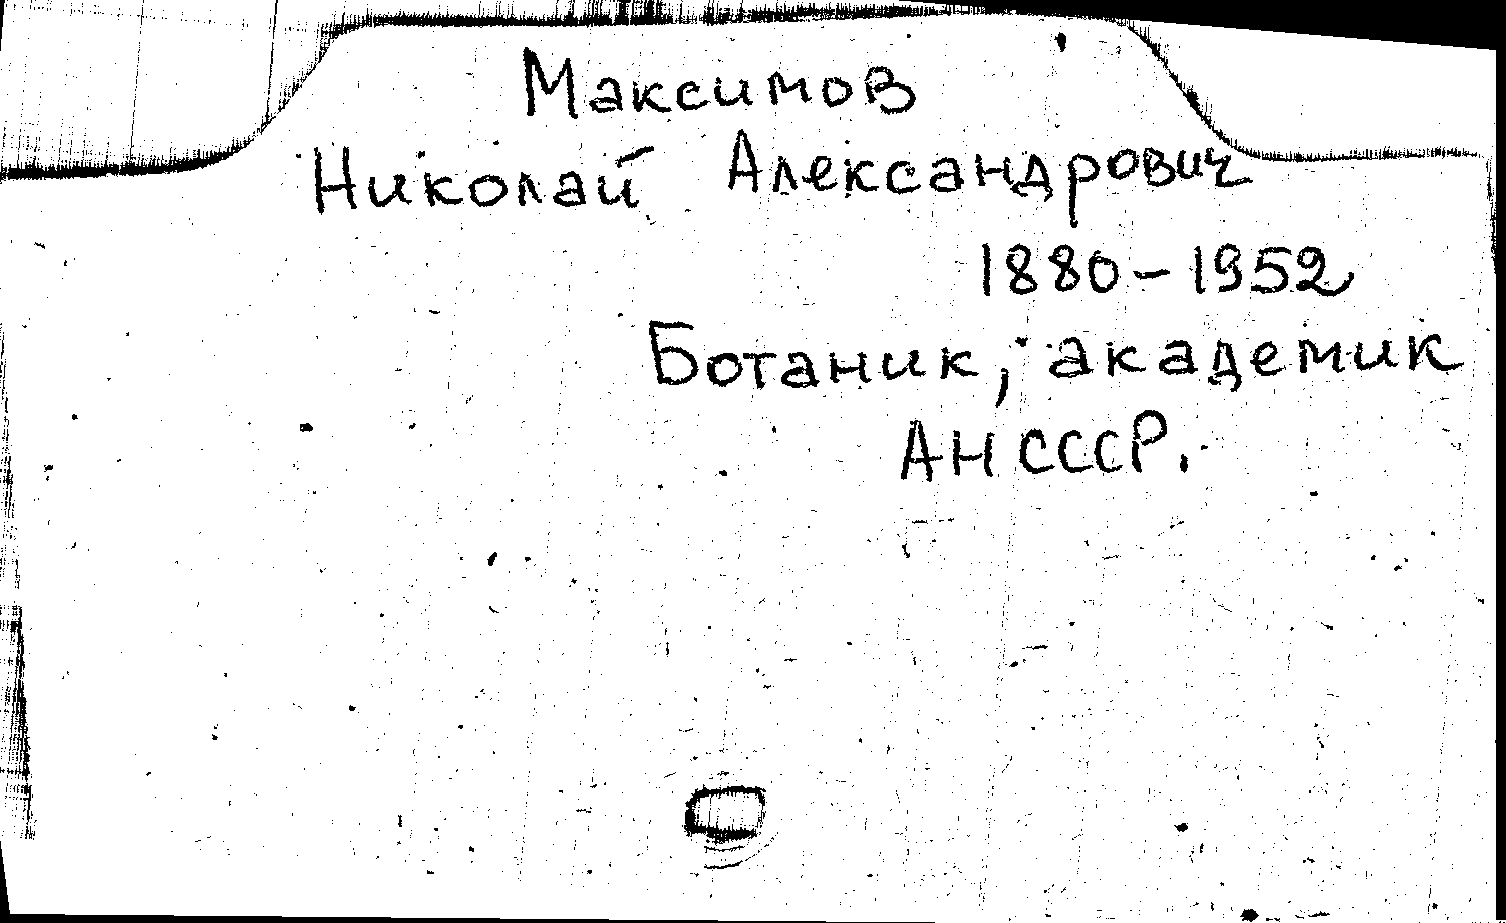 Максимов
Николай Александрович
1880-1952
Ботаник, академик
АН СССР.